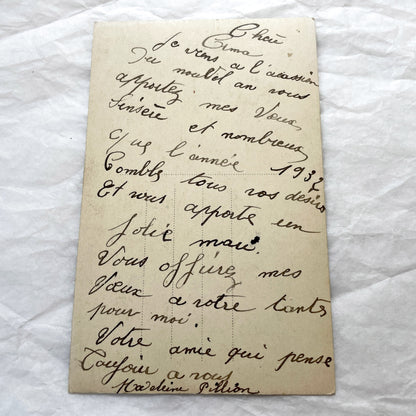 Cheü
Erma
Je viens a l'acassion
Du nouvel an vous
apportez mes Vœux
Sinsère et nombreux
Que l'année 1937
Comble tous vos désirs
Et vous apporte un
Jolie mari.
Vous offrirez mes
Vœux a votre tante
pour moi.
Votre amie qui pense
Toujour a vous
Madeleine Pillion